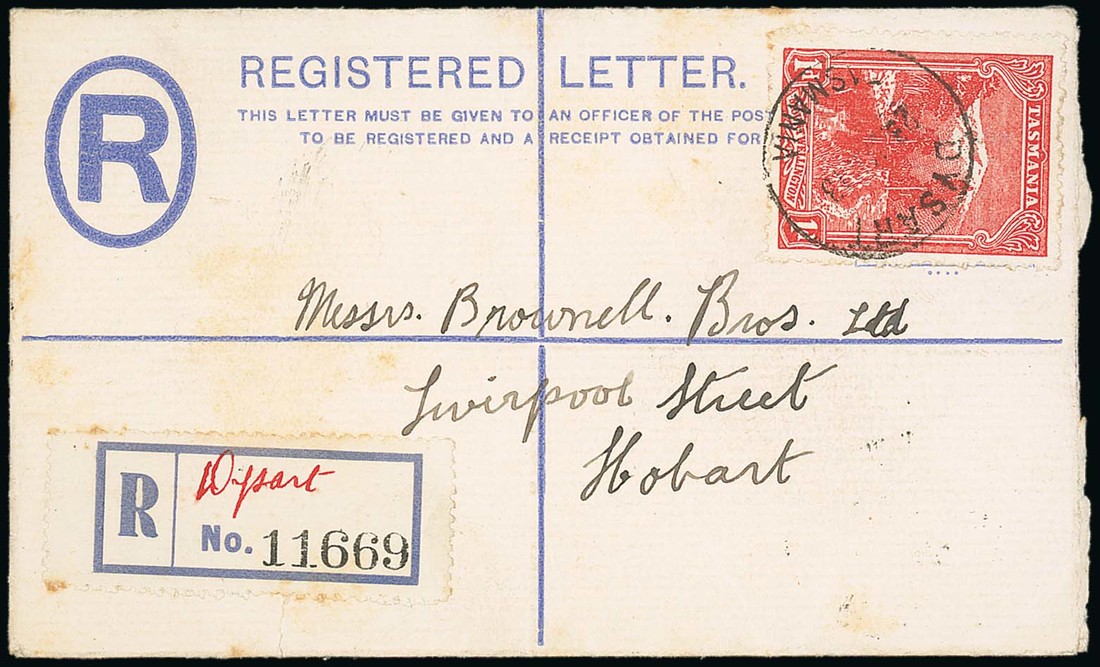 R
REGISTERED LETTER.
THIS LETTER MUST BE GIVEN TO AN OFFICER OF THE POST
TO BE REGISTERED AND A RECEIPT OBTAINED FOR
TASMANIA
DYSART
TASMANIA
Messrs. Brownell. Bros. Ltd
Liverpool Street
Hobart
R
Dysart
No. 11669